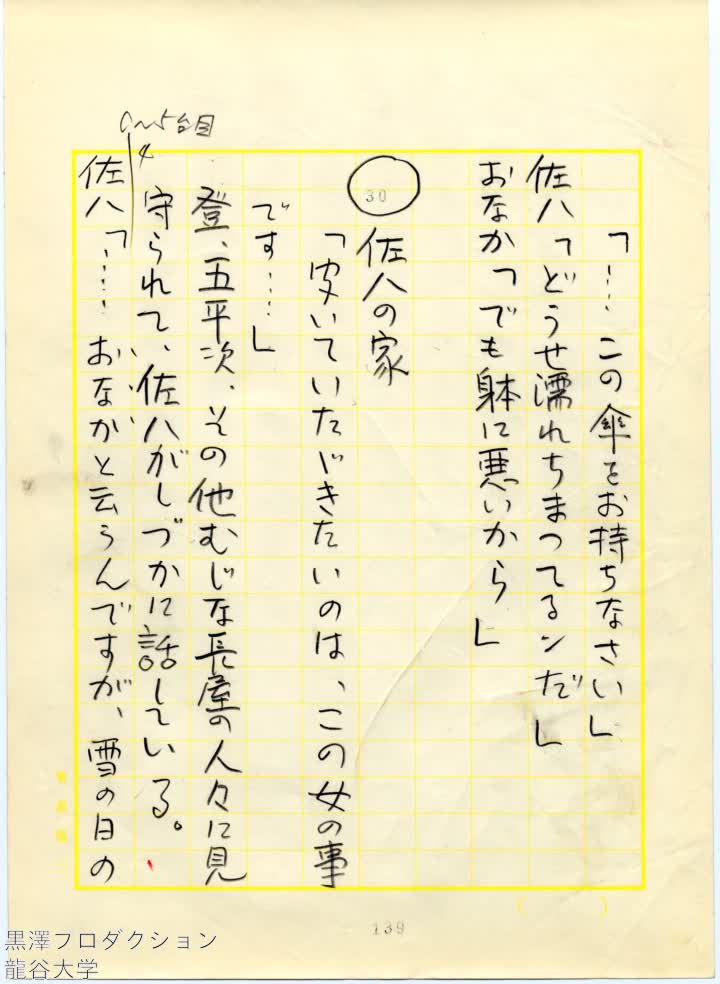 「…この傘をお持ちなさい」
佐八「どうせ濡れちまってるンだ」
おなか「でも躰に悪いから」
30
佐八の家
「皮いていたゞきたいのは、この女の事
です……」
登、五平次、その他むじな長屋の人々に見
守られて、佐八がしづかに話している。
佐八「……おなかと云うんですが、雪の日の
〜5台目
139
黒澤プロダクション
龍谷大学